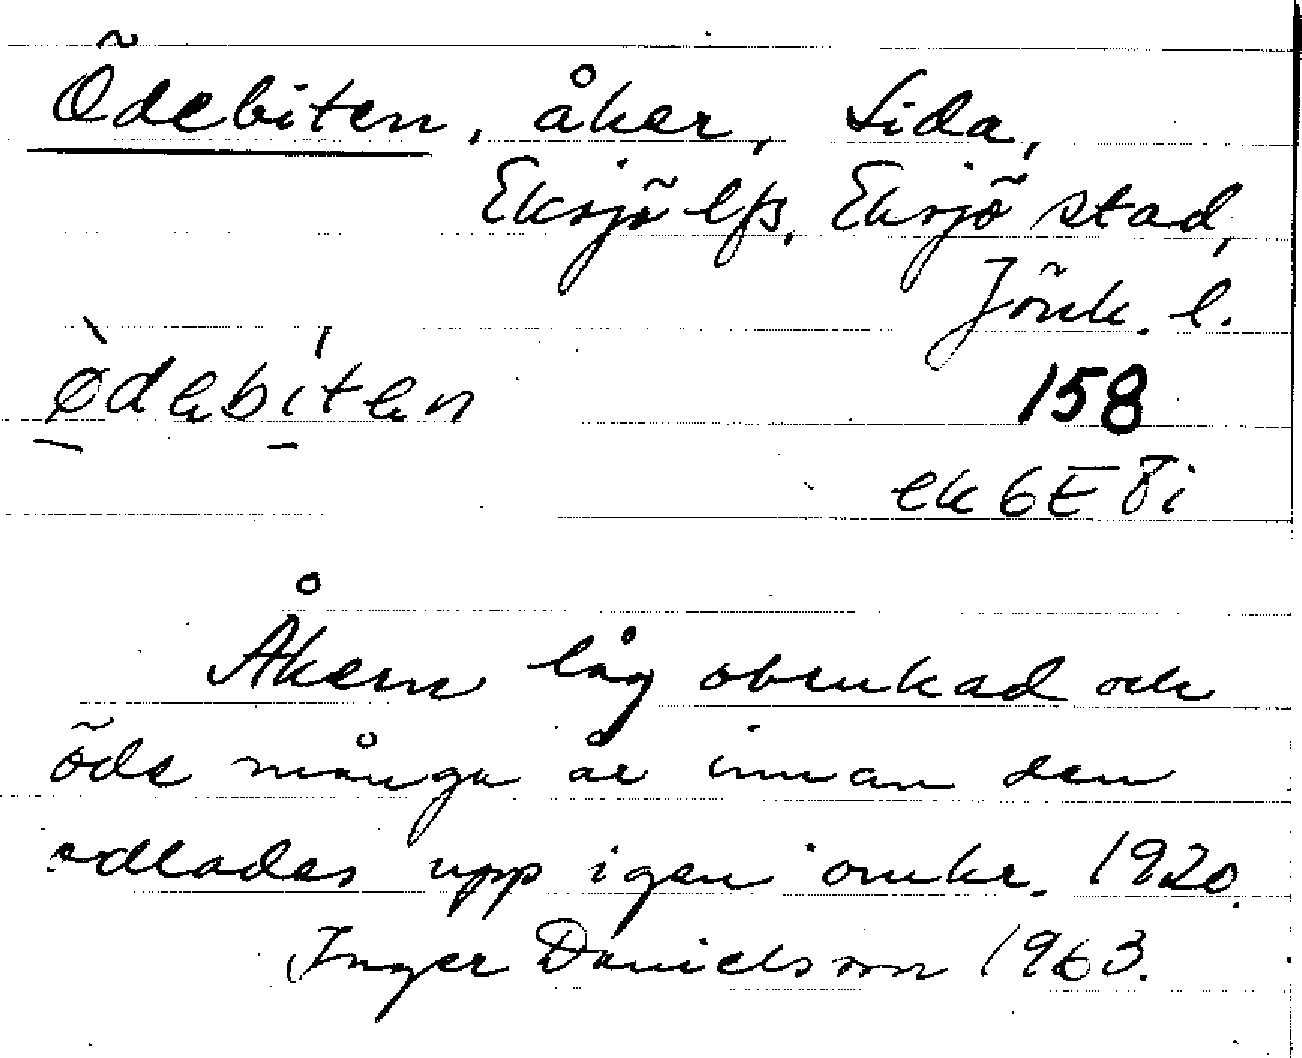 Ödebiten, åker, Lida,
Eksjö lfs, Eksjö stad,
Jönk. l.
ødebiten 158
ek 6E 8i
Åkern låg obrukad och
öde många år innan den
odlades upp igen omkr. 1920.
Inger Danielsson 1963.